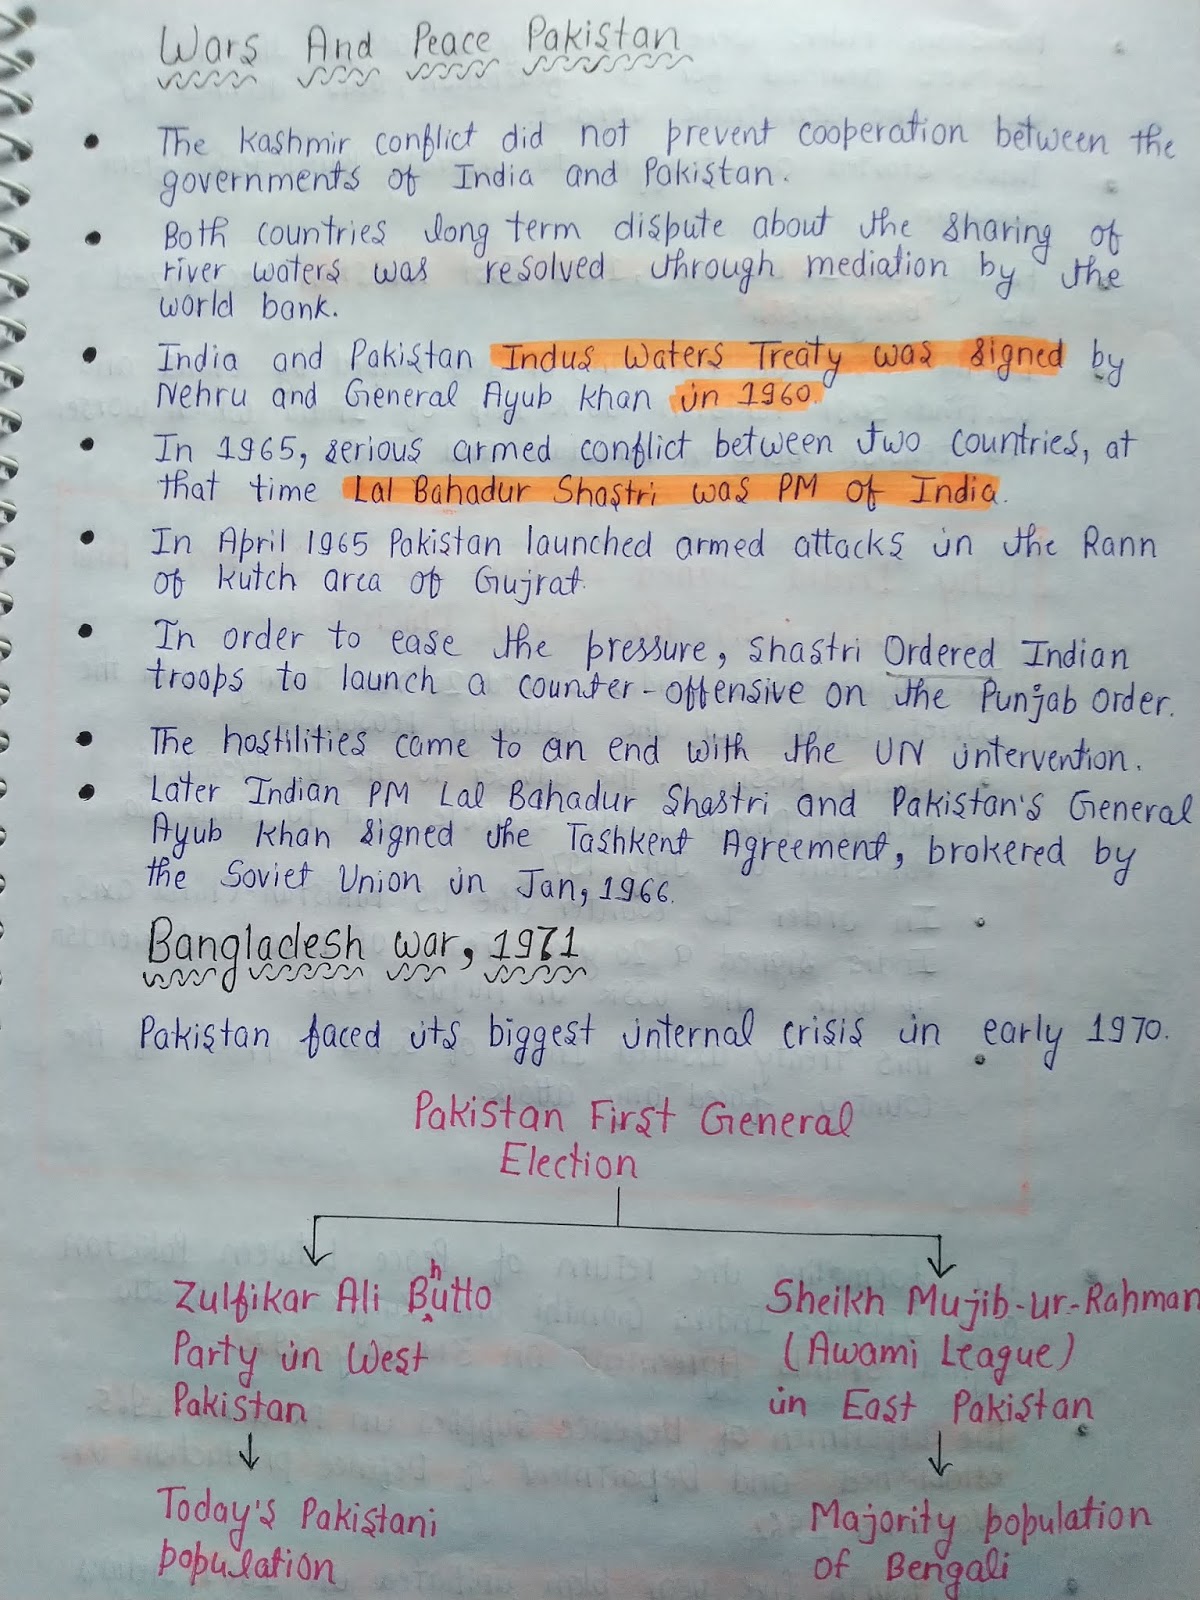 Wars And Peace Pakistan
• The Kashmir conflict did not prevent cooperation between the
governments of India and Pakistan.
• Both countries long term dispute about the sharing of
river waters was resolved through mediation by the
world bank.
• India and Pakistan Indus Waters Treaty was signed by
Nehru and General Ayub khan in 1960.
• In 1965, serious armed conflict between two countries, at
that time Lal Bahadur Shastri was PM of India.
• In April 1965 Pakistan launched armed attacks in the Rann
of kutch area of Gujrat.
• In order to ease the pressure, Shastri Ordered Indian
troops to launch a counter-offensive on the Punjab order.
• The hostilities came to an end with the UN intervention.
• Later Indian PM Lal Bahadur Shastri and Pakistan's General
Ayub khan signed the Tashkent Agreement, brokered by
the Soviet Union in Jan, 1966.
Bangladesh war, 1971
Pakistan faced its biggest internal crisis in early 1970.
Pakistan First General
Election
Zulfikar Ali Bhutto
Party in West
Pakistan
Today's Pakistani
population
Sheikh Mujib-ur-Rahman
(Awami League)
in East Pakistan
Majority population
of Bengali